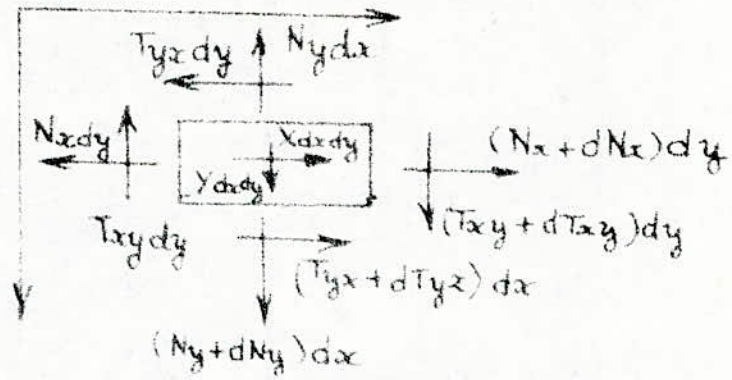 Tyxdy Nydx
Nxdy
Xdxdy
(Nx+dNx)dy
Ydxdy
Txydy
(Txy+dTxy)dy
(Tyx+dTyx)dx
(Ny+dNy)dx